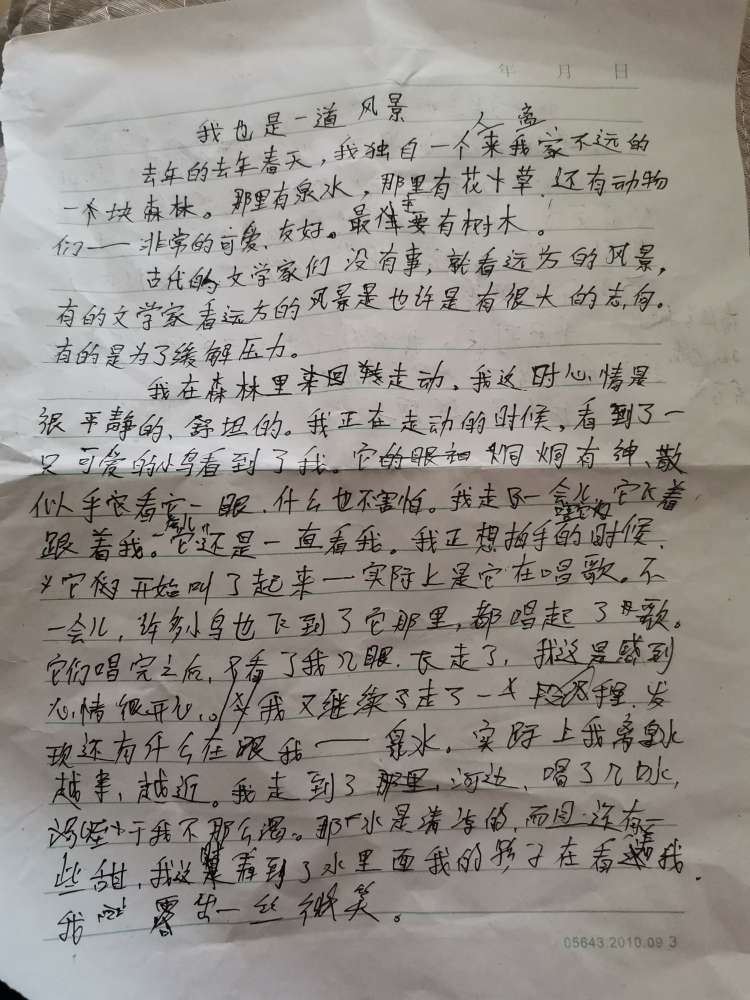 年 月 日
我也是一道风景
人 离
去年的去年春天，我独自一个来我家不远的
一个块森林。那里有泉水，那里有花十草，还有动物
们——非常的可爱、友好。最主要有树木。
古代的文学家们没有事，就看远方的风景，
有的文学家看远方的风景是也许是有很大的志向。
有的是为了缓解压力。
我在森林里走动，我这时心情是
很平静的、舒坦的。我正在走动的时候，看到了一
只可爱的小鸟看到了我。它的眼 炯炯有神、散
似乎它看它一眼，什么也不害怕。我走了一会儿它飞着
跟着我。它还是一直看我。我正想拍手的时候，
它 开始叫了起来—实际上是它在唱歌。不
一会儿，许多小鸟也飞到了它那里，都唱起了歌。
它们唱完之后，只看了我几眼，飞走了，我这是感到
心情很开心。我又继续走了一 程，发
现还有什么在跟我——泉水。实际上我离泉水
越来，越近。我走到了那里，河边，喝了几口水，
于我不那么渴。那个水是清 的，而且还有一
些甜，我这时看到了水里面我的影子在看着我，
我 露出一丝微笑。
05643.2010.09 3